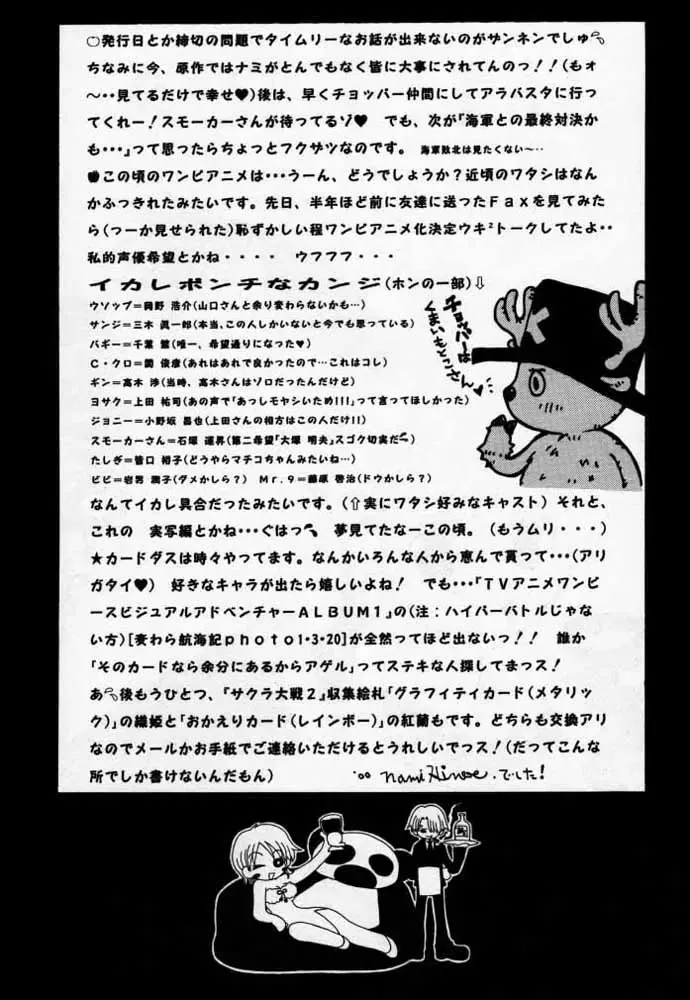 ○発行日とか締切の問題でタイムリーなお話が出来ないのがザンネンでしゅ
ちなみに今、原作ではナミがとんでもなく皆に大事にされてんのっ!!(もォ
～‥見てるだけで幸せ♥)後は、早くチョッパー仲間にしてアラバスタに行っ
てくれー!スモーカーさんが待ってるゾ♥ でも、次が『海軍との最終対決か
も…』って思ったらちょっとフクザツなのです。 海軍敗北は見たくない～‥
この頃のワンピアニメは…うーん、どうでしょうか?近頃のワタシはなん
かふっきれたみたいです。先日、半年ほど前に友達に送ったFaxを見てみた
ら(つーか見せられた)恥ずかしい程ワンピアニメ化決定ウキ²トークしてたよ‥
私的声優希望とかね・・・・ ウフフフ・・・
イカレポンチなカンジ(ホンの一部)⇩
ウソップ=岡野 浩介(山口さんと余り変わらないかも…)
サンジ=三木 眞一郎(本当、この人しかいないと今でも思っている)
バギー=千葉 繁(唯一、希望通りになった♥)
C・クロ=関 俊彦(あれはあれで良かったので…これはコレ)
ギン=高木 渉(当時、高木さんはゾロだったんだけど)
ヨサク=上田 祐司(あの声で「あっしモヤシいため!!!」って言ってほしかった)
ジョニー=小野坂 昌也(上田さんの相方はこの人だけ!!)
スモーカーさん=石塚 運昇(第二希望「大塚 明夫」スゴク切実だ)
たしぎ=皆口 裕子(どうやらマチコちゃんみたいね…)
ビビ=岩男 潤子(ダメかしら?) Mr.9=藤原 啓治(ドウかしら?)
チョッパーは
くまいもとこさん♥
なんてイカレ具合だったみたいです。(⇧実にワタシ好みなキャスト) それと、
これの 実写編とかね…ぐはっ 夢見てたなーこの頃。(もうムリ・・・)
★カードダスは時々やってます。なんかいろんな人から恵んで貰って…(アリ
ガタイ♥) 好きなキャラが出たら嬉しいよね! でも…「TVアニメワンピ
ースビジュアルアドベンチャーALBUM1」の(注:ハイパーバトルじゃな
い方)[麦わら航海記photo1・3・20]が全然ってほど出ないっ!! 誰か
「そのカードなら余分にあるからアゲル」ってステキな人探してまっス!
あ 後もうひとつ、『サクラ大戦2』収集絵札「グラフィティカード(メタリッ
ク)」の織姫と「おかえりカード(レインボー)」の紅蘭もです。どちらも交換アリ
なのでメールかお手紙でご連絡いただけるとうれしいでっス!(だってこんな
所でしか書けないんだもん) '00 nami Hirose.でした!